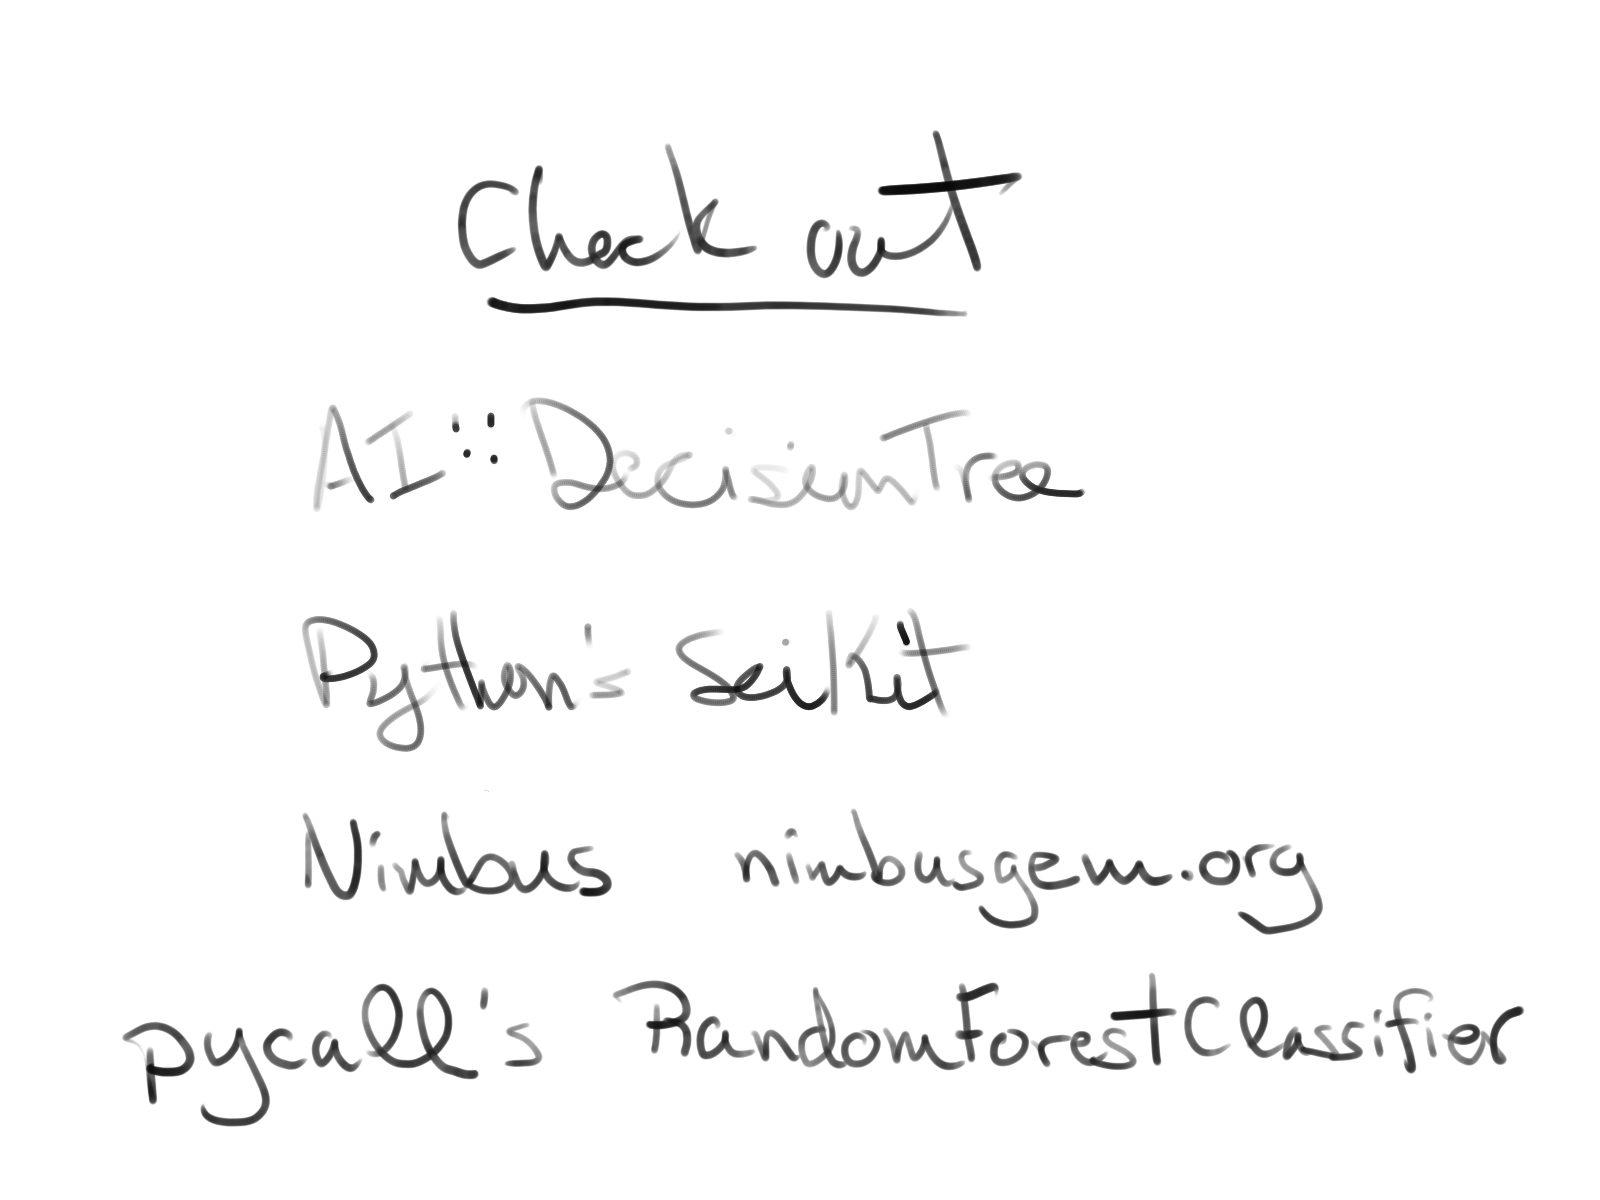 Check out
AI::DecisionTree
Python's SciKit
Nimbus nimbusgem.org
pycall's RandomForestClassifier